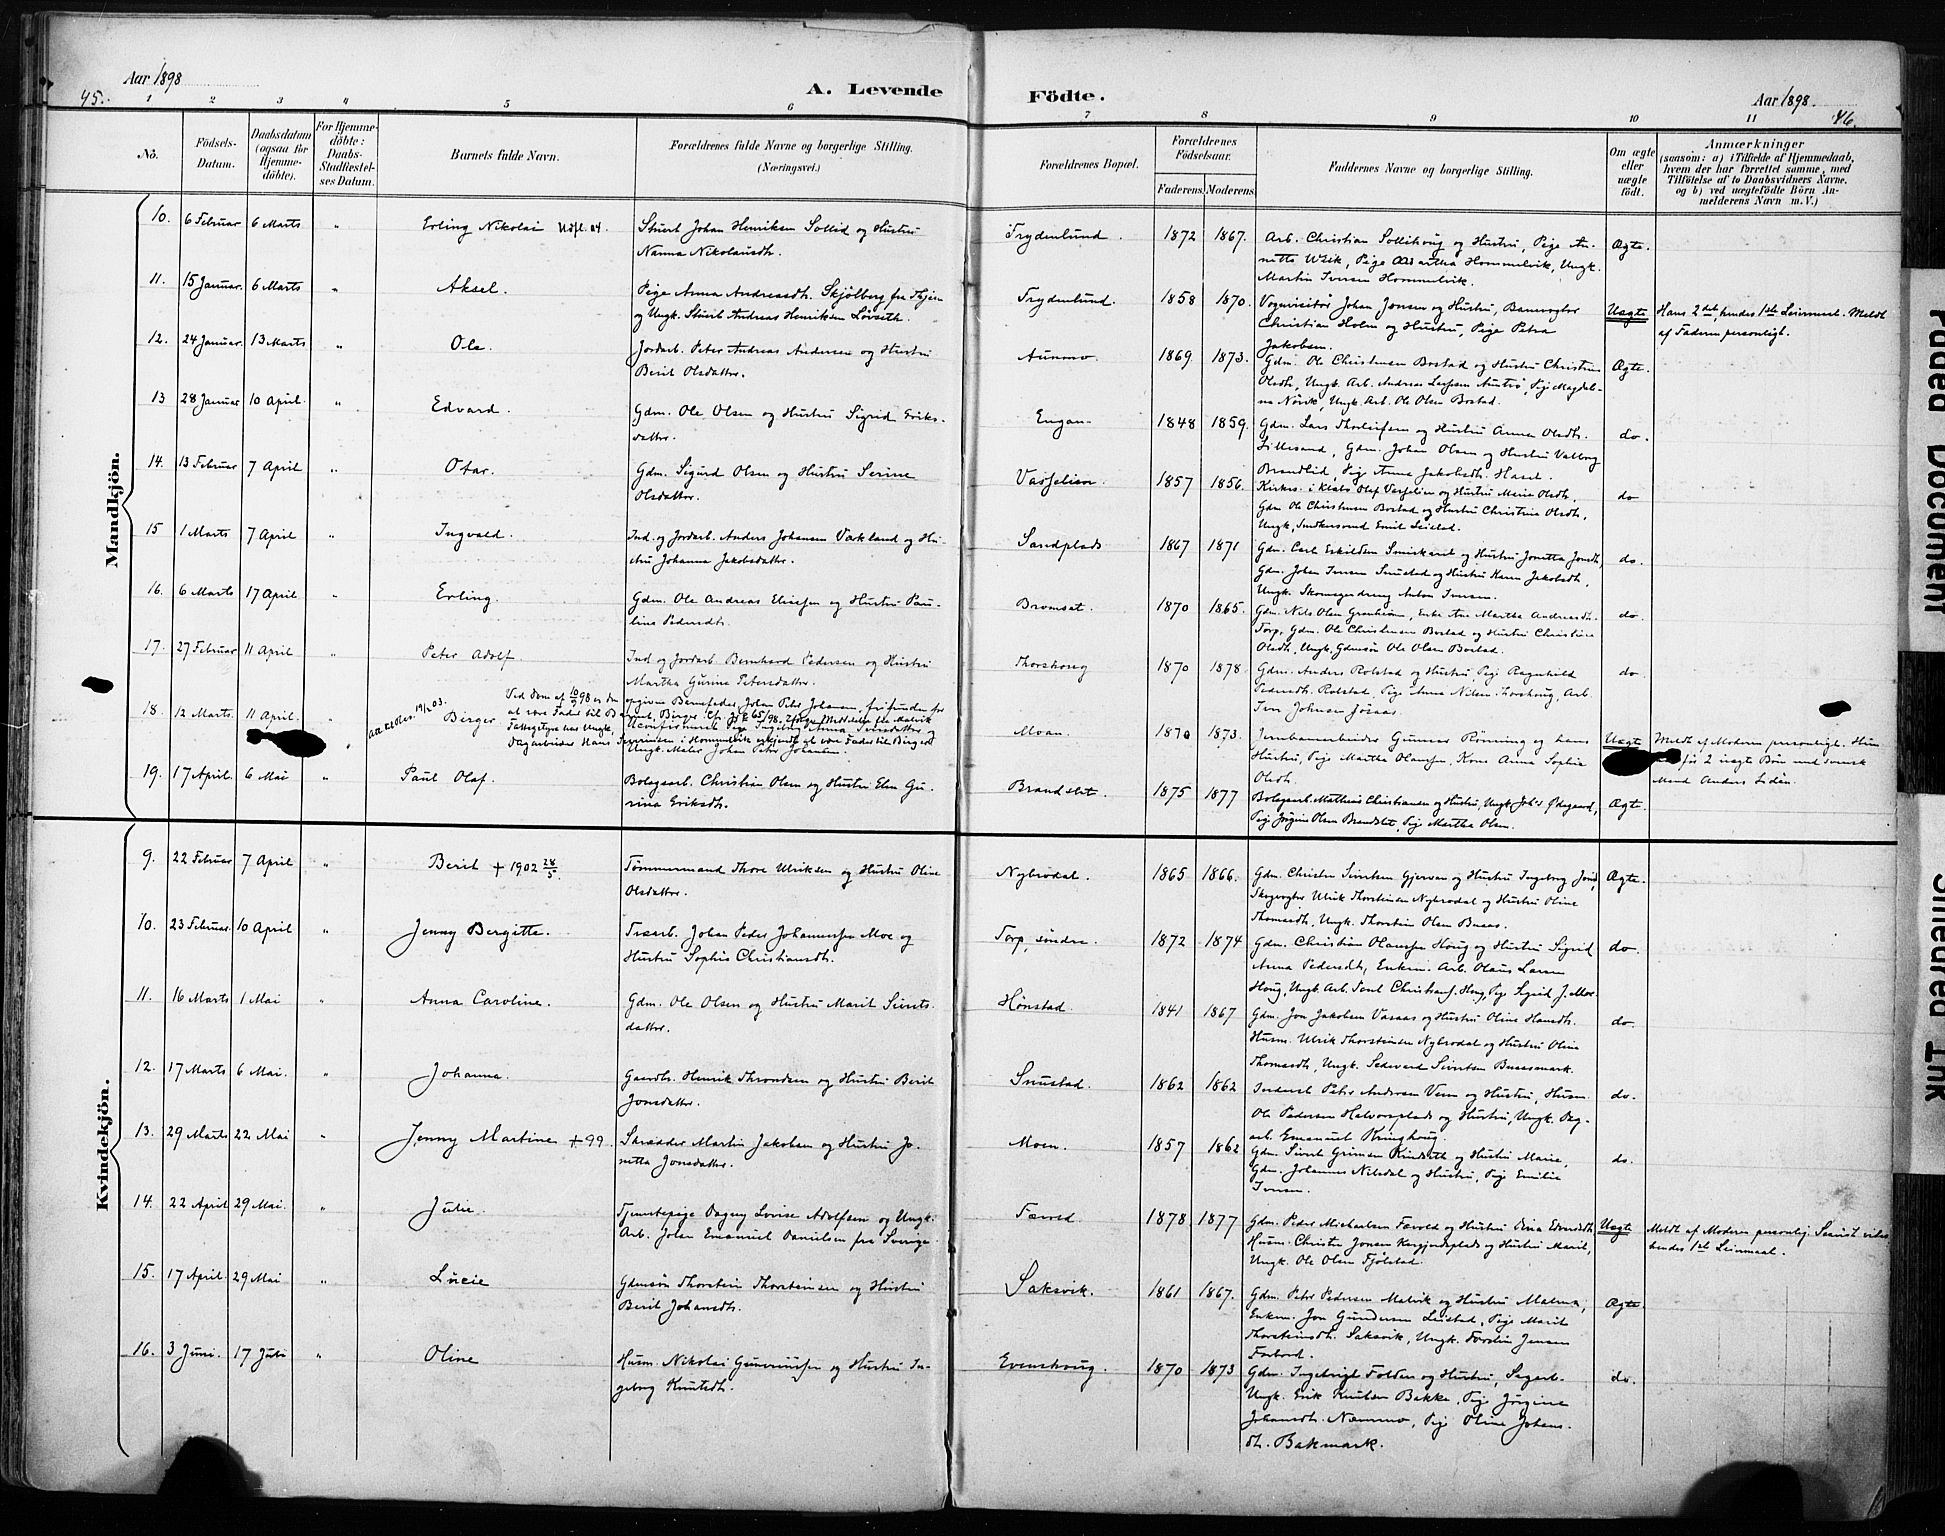 Aar 1898
45.
A. Levende Födte.
Aar 1898.
46.
1 2 3 4 5 6 7 8 9 10 11
No.
Födsels-Datum.
Daabsdatum (ogsaa för Hjemmedöbte).
For Hjemmedöbte: Daabs-Stadfestelses Datum.
Barnets fulde Navn.
Forældrenes fulde Navne og borgerlige Stilling.
(Næringsvei.)
Forældrenes Bopæl.
Forældrenes Födselsaar.
Faderens. Moderens.
Faddernes Navne og borgerlige Stilling.
Om ægte eller uægte födt.
Anmærkninger
(saasom: a) i Tilfælde af Hjemmedaab, hvem der har forrettet samme, med Tilföielse af to Daabsvidners Navne, og b) ved uægtefödte Börn Anmelderens Navn m. V.)
Mandkjön.
10. 6 Februar 6 Marts " Erling Nikolai Stuert Johan Henriksen Sollid og Hustru
Nanna Nikolausdtr. Frydenlund. 1872 1867. Arb. Christian Sollihoug og Hustru, Pige Annette Wiik, Pige Martha Hommelvik, Ungk.
Martin Iversen Hommelvik. Ægte.
11. 15 Januar. 6 Marts " Aksel. Pige Anna Andreasdtr. Skjölberg fra
og Ungk. Stuert Andreas Henriksen Løvseth. Frydenlund. 1858 1870. Vognvisitør Johan Jonsen og Hustru, Banevogter
Christian Holm og Hustru, Pige Petra
Jakobsen. Uægte Hans 2det, hendes 1ste Leiermaal. Meldt
af Faderen personligt.
12. 24 Januar 13 Marts " Ole Jordarb. Peter Andreas Andersen og Hustru
Berit Olsdatter. Aunmo. 1869 1873. Gdm. Ole Christensen Bostad og Hustru Christine
Olsdtr, Ungk. Arb. Andreas Larssen, Pige Magdalena, Ungk. Arb. Ole Olsen Bostad. Ægte.
13 28 Januar 10 April " Edvard. Gdm. Ole Olsen og Hustru Sigrid Eriksdatter. Engan 1848 1859. Gdm. Lars Thorleifsen og Hustru Anna Olsdtr.
Lillesand, Gdm. Johan Olsen og Hustru Valborg
Brandlid, Pige Anna Jakobsdtr. do.
14. 13 Februar 7 April " Otar. Gdm. Sigurd Olsen og Hustru Serine
Olsdatter. Vasseliën. 1857 1856. Olaf Vasselien og Hustru Marie Olsdtr,
Gdm Ole Christensen Bostad og Hustru Christine Olsdtr,
Ungk. Emil Leistad. do
15 1 Marts 7 April " Ingvald. Ind. og Jordarb. Anders Johansen Vækland og Hustru Johanna Jakobsdatter. Sandplads 1867 1871 Gdm. Carl Eskildsen og Hustru Jonetta Jonsdtr,
Gdm. Johan Iversen Smustad og Hustru Karen Jakobsdtr,
Ungk. Anton Iversen. do.
16. 6 Marts 17 April " Erling. Gdm. Ole Andreas Elisesen og Hustru Pauline Pedersdtr. Bromset. 1870 1865. Gdm. Nils Olsen Grønheim, Enke Ane Martha Andreasdtr.
Torp, Gdm. Ole Christensen Bostad og Hustru Christine
Olsdtr, Ungk. Gdmsøn Ole Olsen Bostad. do.
17. 27 Februar 11 April " Peter Adolf. Ind og Jordarb Bernhard Pedersen og Hustru
Martha Gurine Petersdatter. Thorshoug 1870 1878. Gdm. Anders Rolstad og Hustru, Pige Ragnhild
Pedersdtr. Rolstad, Pige Anna Nilsen Thorshoug, Arb.
Iver Johnsen Jøsaas. do
18. 12 Marts 11 April " Birger
Ved Dom af 10/9 98 er den opgivne Barnefader, Johan Peter Johansen, frifunden for
at være Fader til Barnet, Birger.
Fattigstyre har Ungk.
Dagarbeider Hans Severinsen i Hommelvik erkjendt at være Fader til Birger
Ungk. Maler Johan Peter Johansen. Moan. 1870 1873. Jernbanearbeider Gunnar Rønning og hans
Hustru, Pige Martha Olaussen, Kone Anna Sophie
Olsdtr. Uægte Meldt af Moderen personligt. Hun
før 2 uægte Børn med svensk
Mand Anders Lidén.
19. 17 April. 6 Mai " Paul Olaf. Bolagsarb. Christian Olsen og Hustru Elen Gurina Eriksdtr. Brandslet. 1875 1877 Bolagsarb. Mathias Christiansen og Hustru, Ungk. Johs Ødegaard,
Pige Jørgine Olsen Brandslet, Pige Martha Olsen. Ægte.
Kvindekjön.
9. 22 Februar 7 April " Berit + 1902 28/5. Tømmermand Thore Ulriksen og Hustru Oline
Olsdatter. Nybrodal. 1865 1866. Gdm. Christen Sivertsen Gjervan og Hustru Ingeborg Jonsd,
Skogvogter Ulrik Thorstensen Nybrodal og Hustru Oline
Thomasdtr, Ungk. Thorstein Olsen Buaas. Ægte.
10. 23 Februar. 10 April " Jenny Bergitte. Johan Peder Johannessen Moe og
Hustru Sophie Christiansdtr. Torp, søndre. 1872 1874 Gdm. Christian Olaussen Houg og Hustru Sigrid
Anna Pedersdtr, Enkm. Arb. Olaus Larsen
Houg, Ungk. Arb. Christians. Houg, Pige Sigrid J. Moe. do
11. 16 Marts 1 Mai " Anna Caroline. Gdm. Ole Olsen og Hustru Marit Sivertsdatter. Hønstad. 1841 1867 Gdm. Jon Jakobsen Vasaas og Hustru Oline Hansdtr.
Husm. Ulrik Thorsteinsen Nybrodal og Hustru Oline
Thomasdtr, Ungk. Sedevard Sivertsen Buaasmark. do.
12. 17 Marts 6 Mai. " Johanna. Gaardbr. Henrik Throndsen og Hustru Berit
Jonsdatter. Smustad. 1862 1862 Inderst Peter Andersen Venn og Hustru, Husm.
Ole Pedersen Halvorsplads og Hustru, Ungk. Dagarb. Emanuel Kringhoug. do.
13. 29 Marts 22 Mai " Jenny Martine + 99. Skrædder Martin Jakobsen og Hustru Jonetta Jonsdatter. Moen. 1857 1862 Gdm. Sivert Grimsen Kindseth og Hustru Marie,
Gdm. Johannes Nilsdal og Hustru, Pige Emilie
Iversen. do.
14. 22 April 29 Mai. " Julie. Tjenestepige Dagny Lovise Adolfsen og Ungk.
Arb. Johan Emanuel Danielsen fra Sverige. Færeld. 1878 1877 Gdm. Peder Michaelsen Færeld og Hustru,
Husm. Christen Jonsen og Hustru Marit,
Ungk. Ole Olsen Fjølstad. Uægte Meldt af Moderen personlig.
hendes 1ste Leiermaal.
15. 17 April 29 Mai " Lucie Gdmsøn Thorstein Thorsteinsen og Hustru
Berit Johansdtr. Saksvik. 1861 1867. Gdm. Peter Pedersen Malvik og Hustru Malena,
Enkem. Jon Gundersen Leistad, Pige Marit
Thorsteinsdtr. Saksvik, Ungk. Fordin Jensen
Forbord. Ægte.
16. 3 Juni. 17 Juli " Oline Husm. Nikolai Gunneriussen og Hustru Ingeborg Knutsdtr. Evenshoug. 1870 1873 Gdm. Ingebrigt Folden og Hustru, Sagarb.
Ungk. Erik Knutsen Bakke, Pige Jørgine
Johansdtr. Næmmo, Pige Oline Johansdtr. Bakmark. do.
Faded Document
Smeared Ink